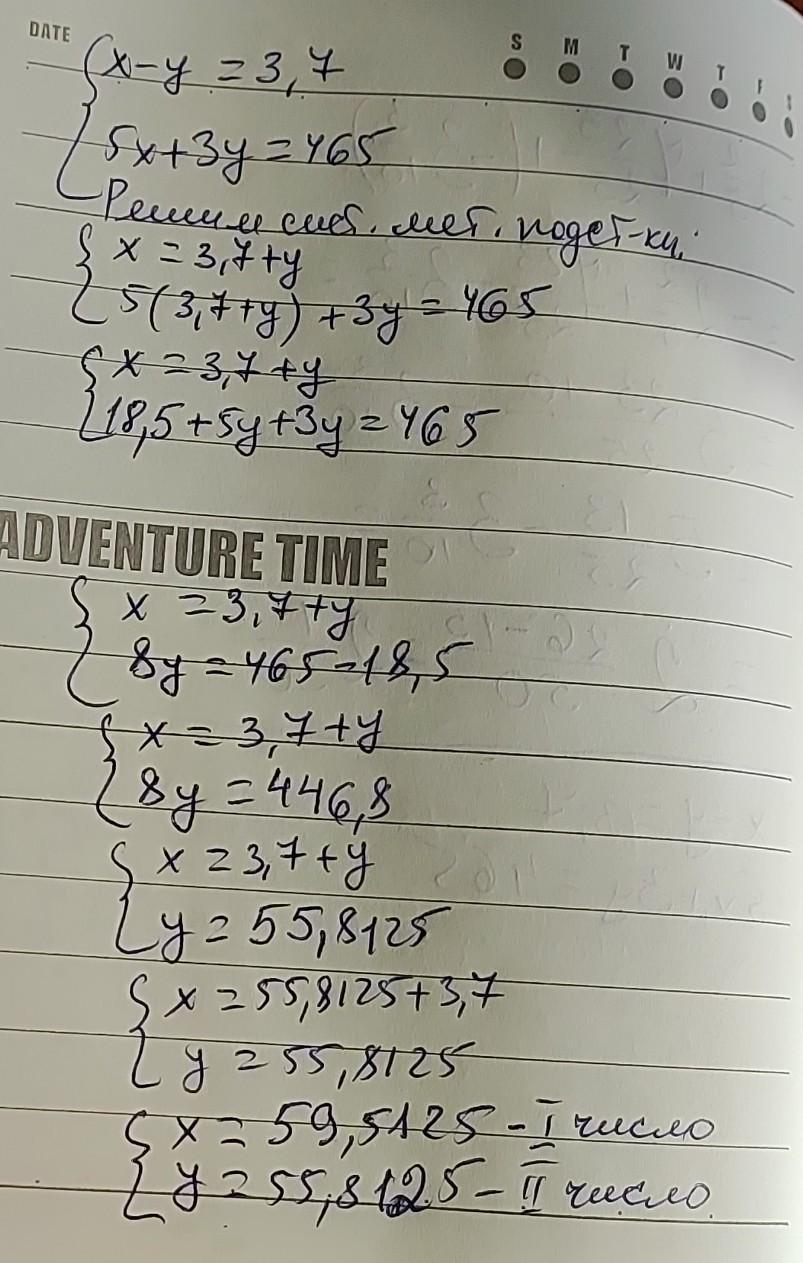 DATE
S M T W T F S
x-y = 3,7
5x+3y=465
Решим сист. мет. подст-ки:
x = 3,7+y
5(3,7+y) +3y = 465
x = 3,7+y
18,5+5y+3y=465
ADVENTURE TIME
x = 3,7+y
8y = 465-18,5
x = 3,7+y
8y = 446,8
x = 3,7+y
y = 55,8125
x = 55,8125+3,7
y = 55,8125
x = 59,5125 - I число
y = 55,8125 - II число